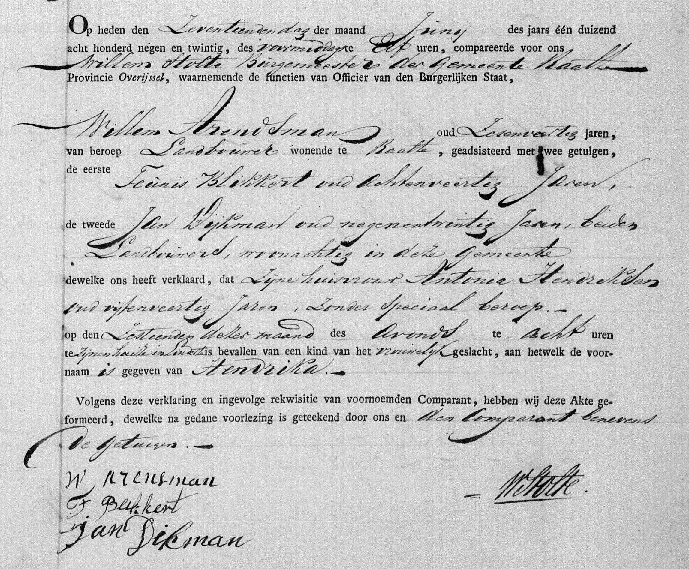 Op heden den Zeventienden dag der maand Juny des jaars één duizend
acht honderd negen en twintig, des voormiddags Elf uren, compareerde voor ons
Willem Stolte Burgemeester der Gemeente Raalte
Provincie Overijssel, waarnemende de functien van Officier van den Burgerlijken Staat,
Willem Arendsman oud Zesenveertig jaren,
van beroep Landbouwer wonende te Raalte, geadsisteerd met twee getuigen,
de eerste
Teunis Blekkert oud achtenveertig Jaren,
de tweede Jan Dijkman oud negenentwintig Jaren, beiden
Landbouwers, woonachtig in deze gemeente
dewelke ons heeft verklaard, dat Zijne huisvrouw Antonia Hendriksen
oud vijfenveertig Jaren, Zonder speciaal beroep.
op den Zestienden dezer maand des avonds te acht uren
te Zijnen huize bevallen van een kind van het vrouwelijk geslacht, aan hetwelk de voor-
naam is gegeven van Hendrika.
Volgens deze verklaring en ingevolge rekwisitie van voornoemden Comparant, hebben wij deze Akte ge-
formeerd, dewelke na gedane voorlezing is geteekend door ons en den Comparant benevens
de getuigen.
W Arensman
F Bekkert
Jan Dikman
W Stolte.